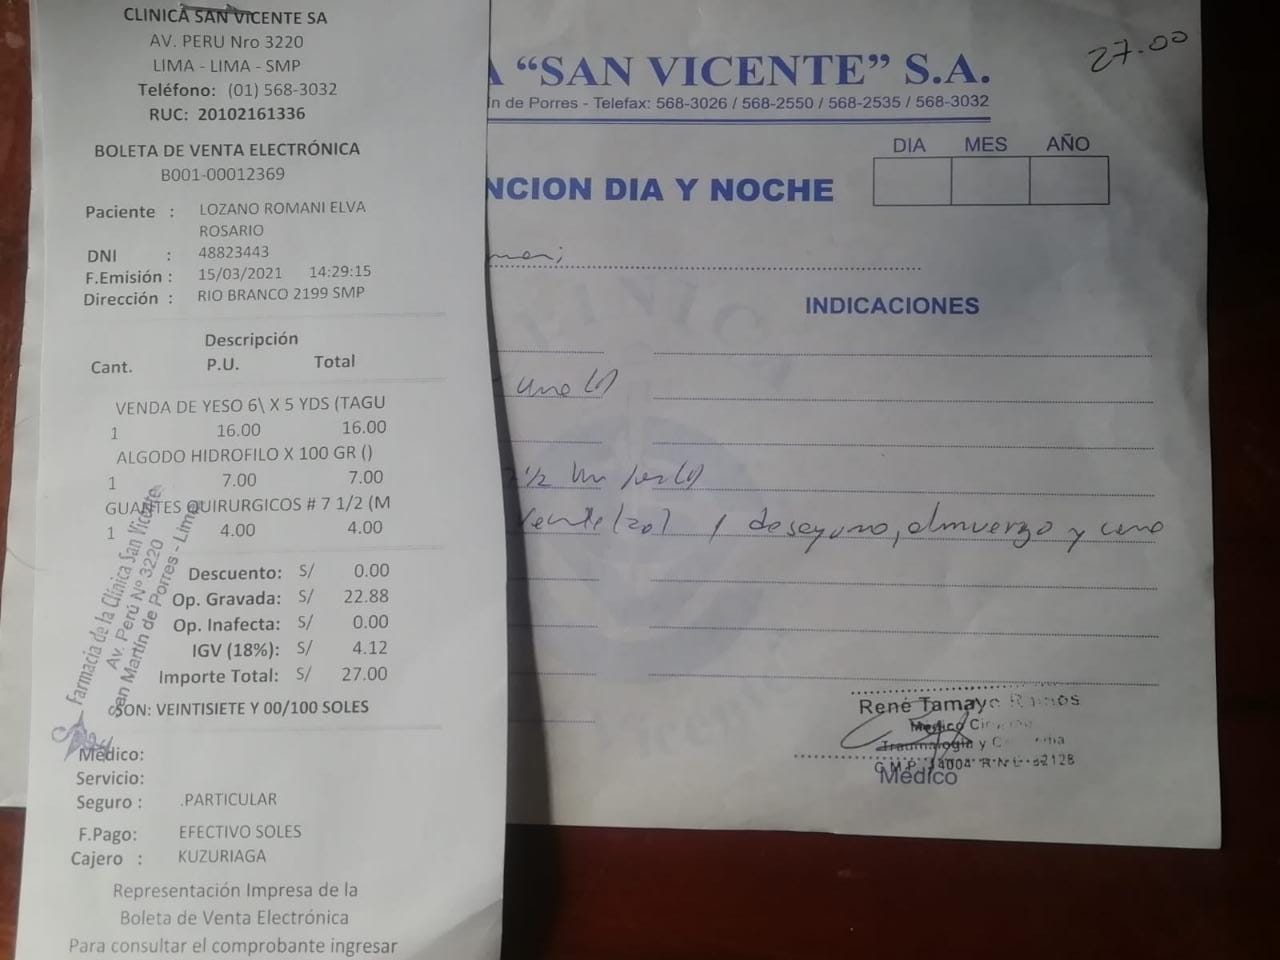 CLINICA SAN VICENTE SA
AV. PERU Nro 3220
LIMA - LIMA - SMP
Teléfono: (01) 568-3032
RUC: 20102161336
BOLETA DE VENTA ELECTRÓNICA
B001-00012369
Paciente : LOZANO ROMANI ELVA
ROSARIO
DNI : 48823443
F.Emisión : 15/03/2021 14:29:15
Dirección : RIO BRANCO 2199 SMP
Descripción
Cant. P.U. Total
VENDA DE YESO 6\ X 5 YDS (TAGU
1 16.00 16.00
ALGODO HIDROFILO X 100 GR ()
1 7.00 7.00
GUANTES QUIRURGICOS # 7 1/2 (M
1 4.00 4.00
Descuento: S/ 0.00
Op. Gravada: S/ 22.88
Op. Inafecta: S/ 0.00
IGV (18%): S/ 4.12
Importe Total: S/ 27.00
SON: VEINTISIETE Y 00/100 SOLES
Farmacia de la Clinica San Vicente
Av. Perú Nº 3220
San Martín de Porres - Lima
Médico:
Servicio:
Seguro : .PARTICULAR
F.Pago: EFECTIVO SOLES
Cajero : KUZURIAGA
Representación Impresa de la
Boleta de Venta Electrónica
Para consultar el comprobante ingresar
27.00
A “SAN VICENTE” S.A.
ín de Porres - Telefax: 568-3026 / 568-2550 / 568-2535 / 568-3032
DIA MES AÑO
NCION DIA Y NOCHE
INDICACIONES
CLINICA
una (1)
7 1/2 un par (1)
veinte (20) 1 desayuno, almuerzo y cena
Vicente
René Tamayo
Medico
Traumatología y
C.M.P. 14004 R.N.E.
Médico